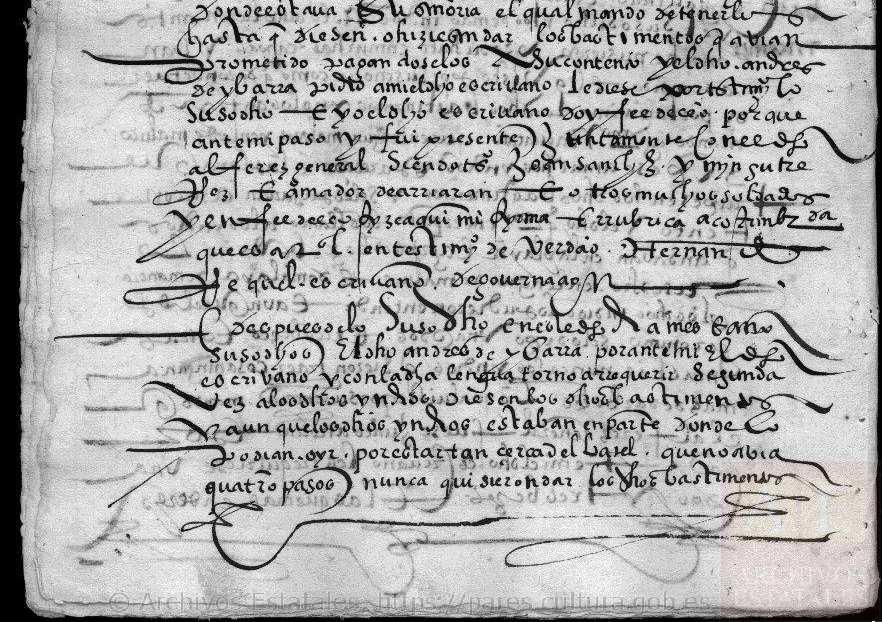 donde estava Su Señoria el qual mando detenerlos
hasta q̃ diesen o hiziesen dar los bastimentos q̃ avian
prometido pagandoselos Su contento y el dho andres
de ybarra pidio a mi el dho escrivano le diese por testimº lo
Susodho E yo el dho escrivano doy fee dello porque
ante mi paso y fui presente Juntamente Con el dho
alferez general Siendo tsº Joan Sanchez y myn gutre
rez E amador de arriaran E otros muchos soldados
y en fee dello fyze aqui mi fyrma E rrubrica acostumbrada
que es a tal en testimº de verdad Hernan
Requel escrivano de governaçion
E despues de lo Susodho en el dho dia mes E año
Susodhos El dho andres de ybarra por ante mi El dho
escrivano y con la dha lengua torno a rrequerir segunda
vez a los dhos yndios diesen los dhos bastimentos
y aunque los dhos yndios estaban en parte donde lo
podian oyr por estar tan cerca del batel que no avia
quatro pasos nunca quisieron dar los dhos bastimentos
© Archivos Estatales, https://pares.cultura.gob.es
ARCHIVOS
ESTATALES